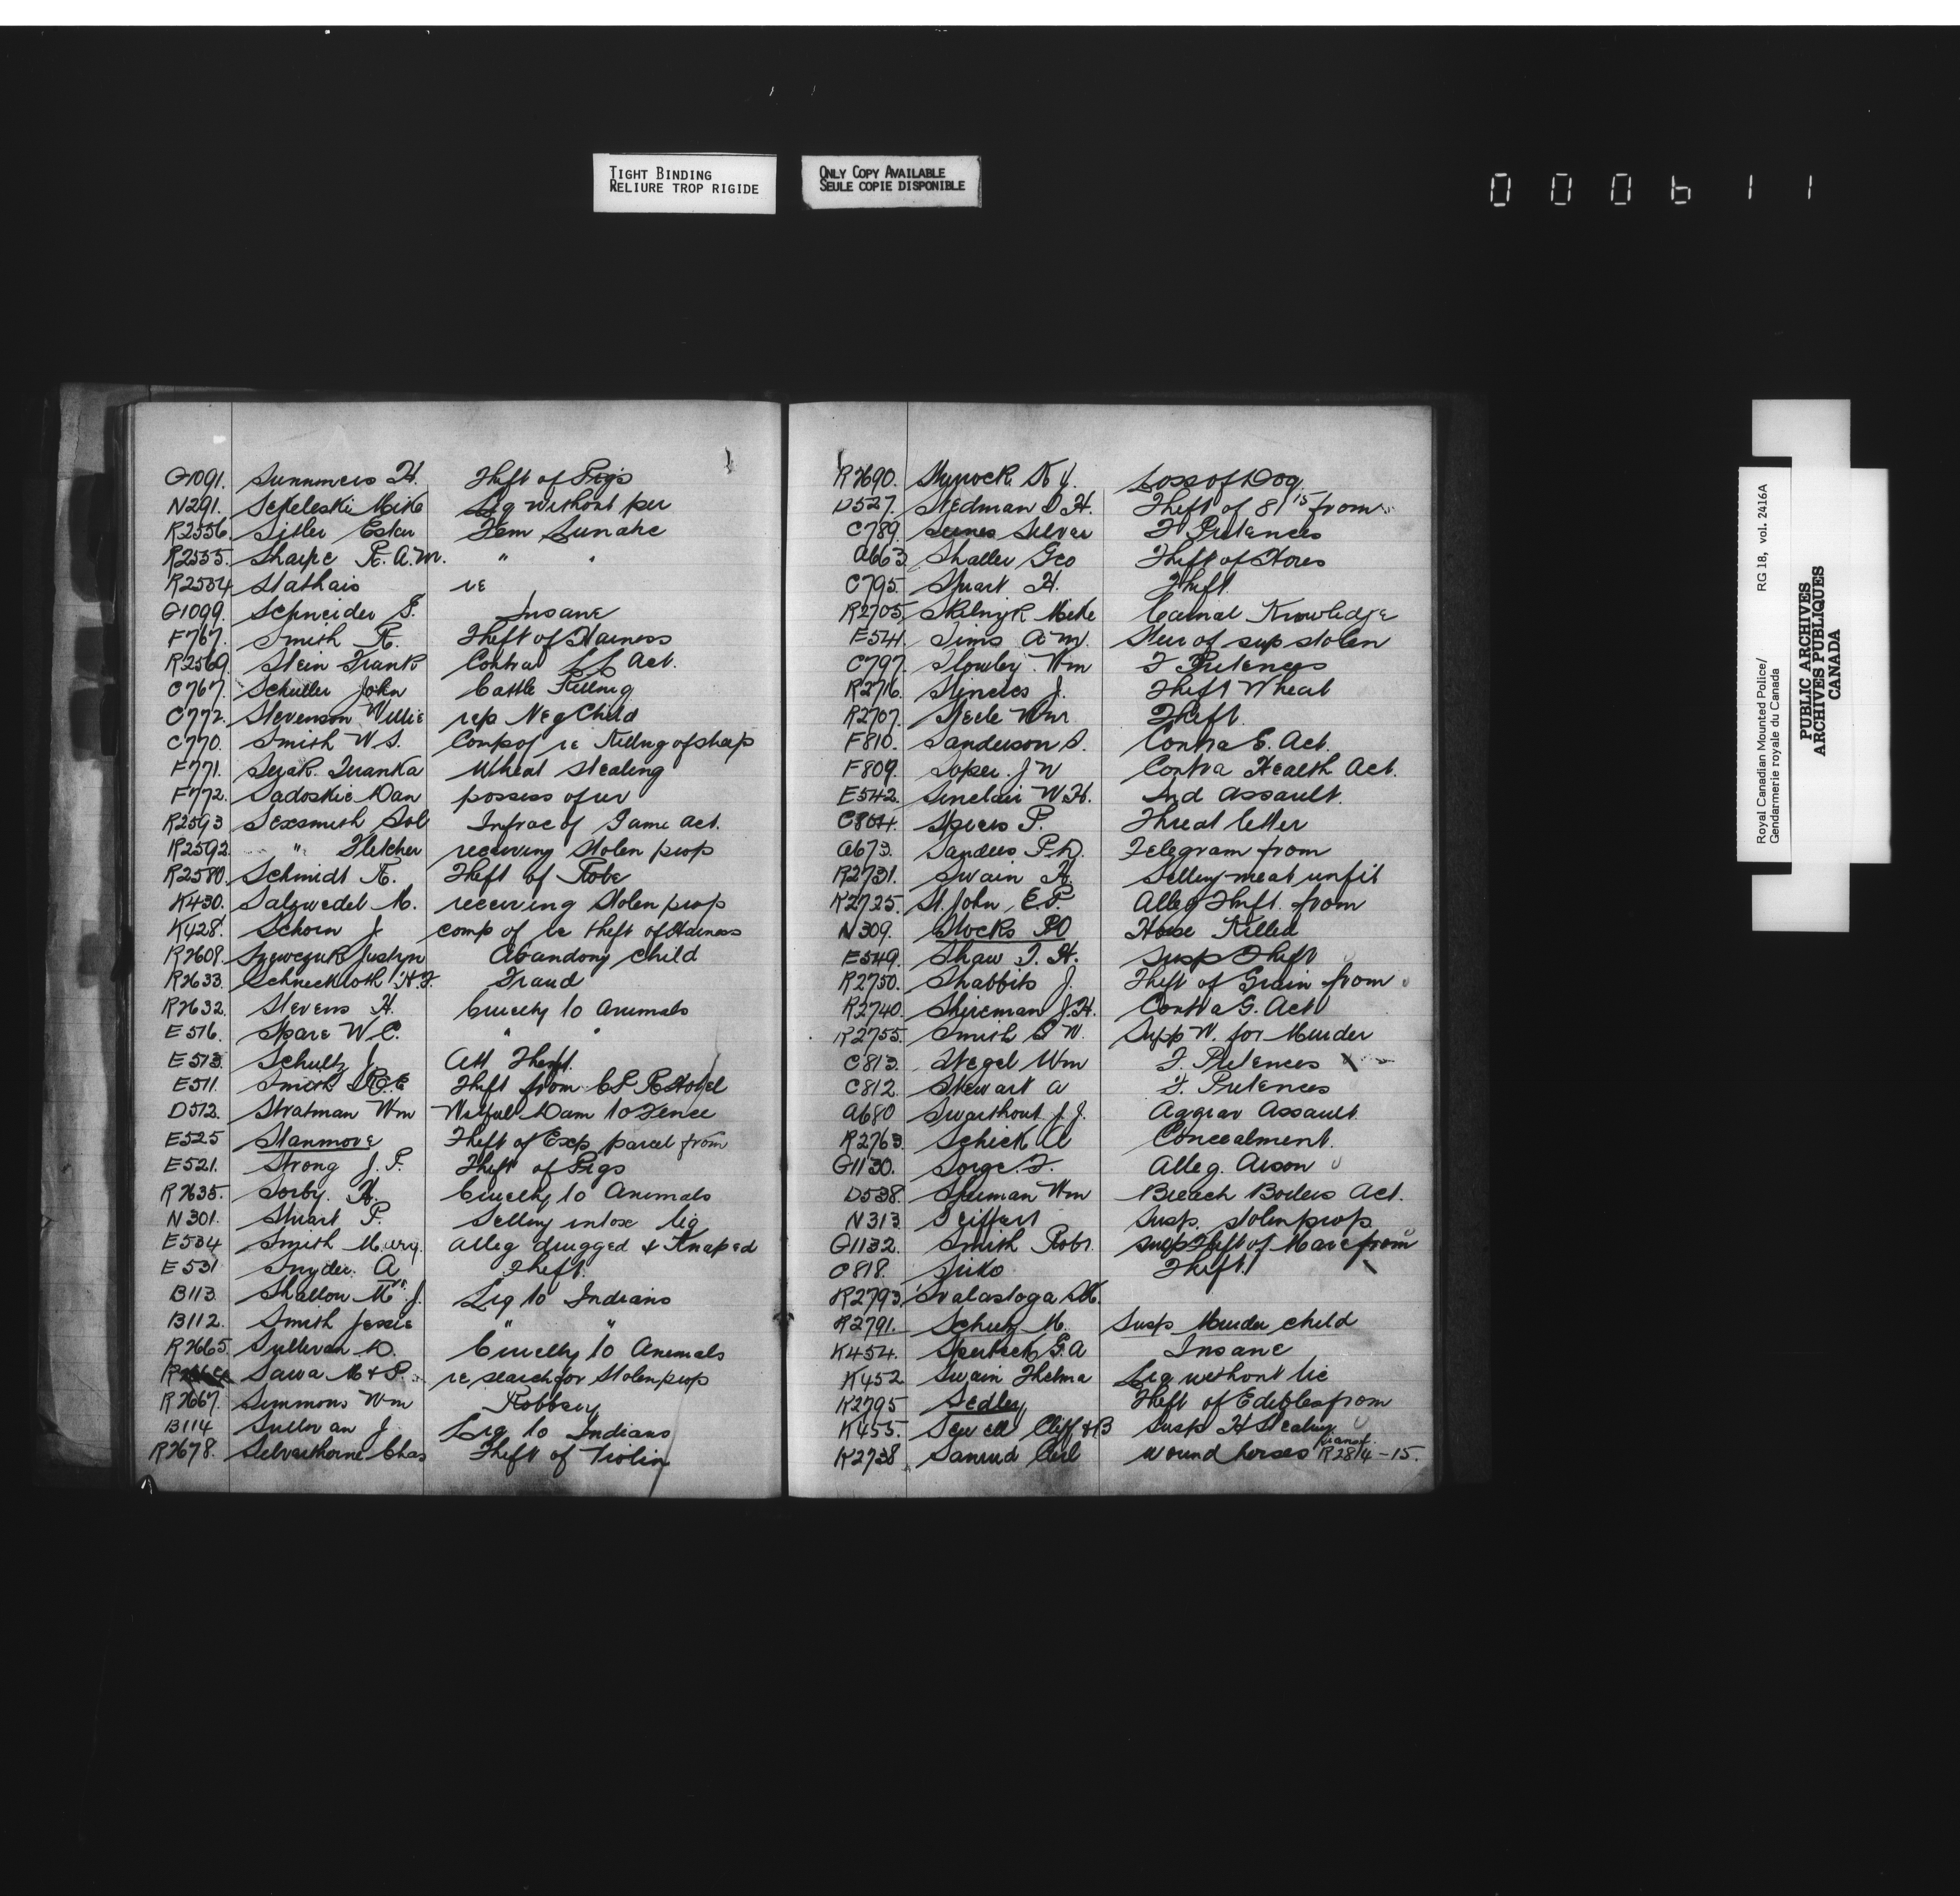 TIGHT BINDING
RELIURE TROP RIGIDE
ONLY COPY AVAILABLE
SEULE COPIE DISPONIBLE
000611
G1091. Summers H. Theft of Pigs
N291. Sekeleski Mike Liq without per
R2556. Sitler Ester Fem Lunatic
R2555. Sharpe R. A. W. " "
R2554 Stathais re
G1099. Schneider G. Insane
F767. Smith R. Theft of Harness
R2569. Stein Frank Contra L L Act.
C767. Schuller John Cattle Killing
C772. Stevenson Willie rep Neg Child
C770. Smith W S. Comp of re Killng of sheep
F771. Serak. Iwanka Wheat Stealing
F772. Sadoskie Dan possess of ur
R2593 Sexsmith Sol Infrac of Game Act.
R2592. " Fletcher receiving Stolen prop
R2580. Schmidt R. Theft of Robe
K430. Salzwedel M. receiving Stolen prop
K428. Schorn J comp of re theft of Harness
R2608. Szewczuk Justyn Abandong child
R2633. Schneckloth H. F. Fraud
R2632. Stevens H. Cruelty to Animals
E516. Spare W C. " "
E513. Schultz J. Att Theft.
E511. Smith R. E Theft from C P R Hotel
D512. Stratman Wm Wilful Dam to Fence
E525 Stanmore Theft of Exp parcel from
E521. Strong J. P. Theft of Pigs
R2635. Sorby. H. Cruelty to Animals
N301. Stuart P. Selling intox liq
E534 Smith Mary. Alleg drugged & Knaped
E531 Snyder. A Theft.
B113. Shallow Mrs J. Liq to Indians
B112. Smith Jessie " "
R2665. Sullivan D. Cruelty to Animals
Sawa M & P. re search for Stolen prop
R2667. Simmons Wm Robbery
B114 Sullivan J Liq to Indians
R2678. Silverthorne Chas Theft of Violin
R2690. K J. Loss of Dog
D527. Stedman D H. Theft of 81 15 from
C789. Silver F Pretences
A663. Shaller Geo Theft of Hores
C795. Stuart H. Theft.
R2705. Skilnyk Mike Carnal Knowledge
E541. Sims A. M. Steer of sup stolen
C797. Slowley. Wm F Pretences
R2716. J. Theft Wheat
R2707. Steele Wm Theft.
F810. Sanderson S. Contra E. Act.
F809. Soper. J W Contra Health Act.
E542. Sinclair W. H. Ind Assault.
C804. Spiers P. Threat letter
A673. Sanders P. D. Telegram from
R2731. Swain H. Selling meat unfit
R2725. St. John E. P. Alleg Theft. from
N309. Stocks PO Horse Killed
E549. Shaw T. H. Susp Theft
R2750. Shabbits J. Theft of Grain from
R2740. Shireman J. H. Contra G. Act
R2755. Smith G W. Supp W. for Murder
C813. Stegel Wm F. Pretences
C812. Stewart A F. Pretences
A680 Swarthout J. J. Aggrav Assault.
R2763. Schick A Concealment.
G1130. Sorge. F. Alleg. Arson
D538. Wm Breach Boilers Act.
N313 Seiffert Susp. stolen prop
G1132. Smith Robt. susp Theft of Mare from
C818. Siiko Theft.
R2793 Svalastoga
R2791. Schultz M. Susp Murder child
K454. Sperbeck G. A Insane
K452 Swain Thelma Liq without lic
R2795 Sedley Theft of Edibles from
K455. Sewell Cliff & B Susp H Stealing
R2738 Samrud Carl wound horses transf. R2814-15.
Royal Canadian Mounted Police/ RG 18, vol. 2416A
Gendarmerie royale du Canada
PUBLIC ARCHIVES
ARCHIVES PUBLIQUES
CANADA